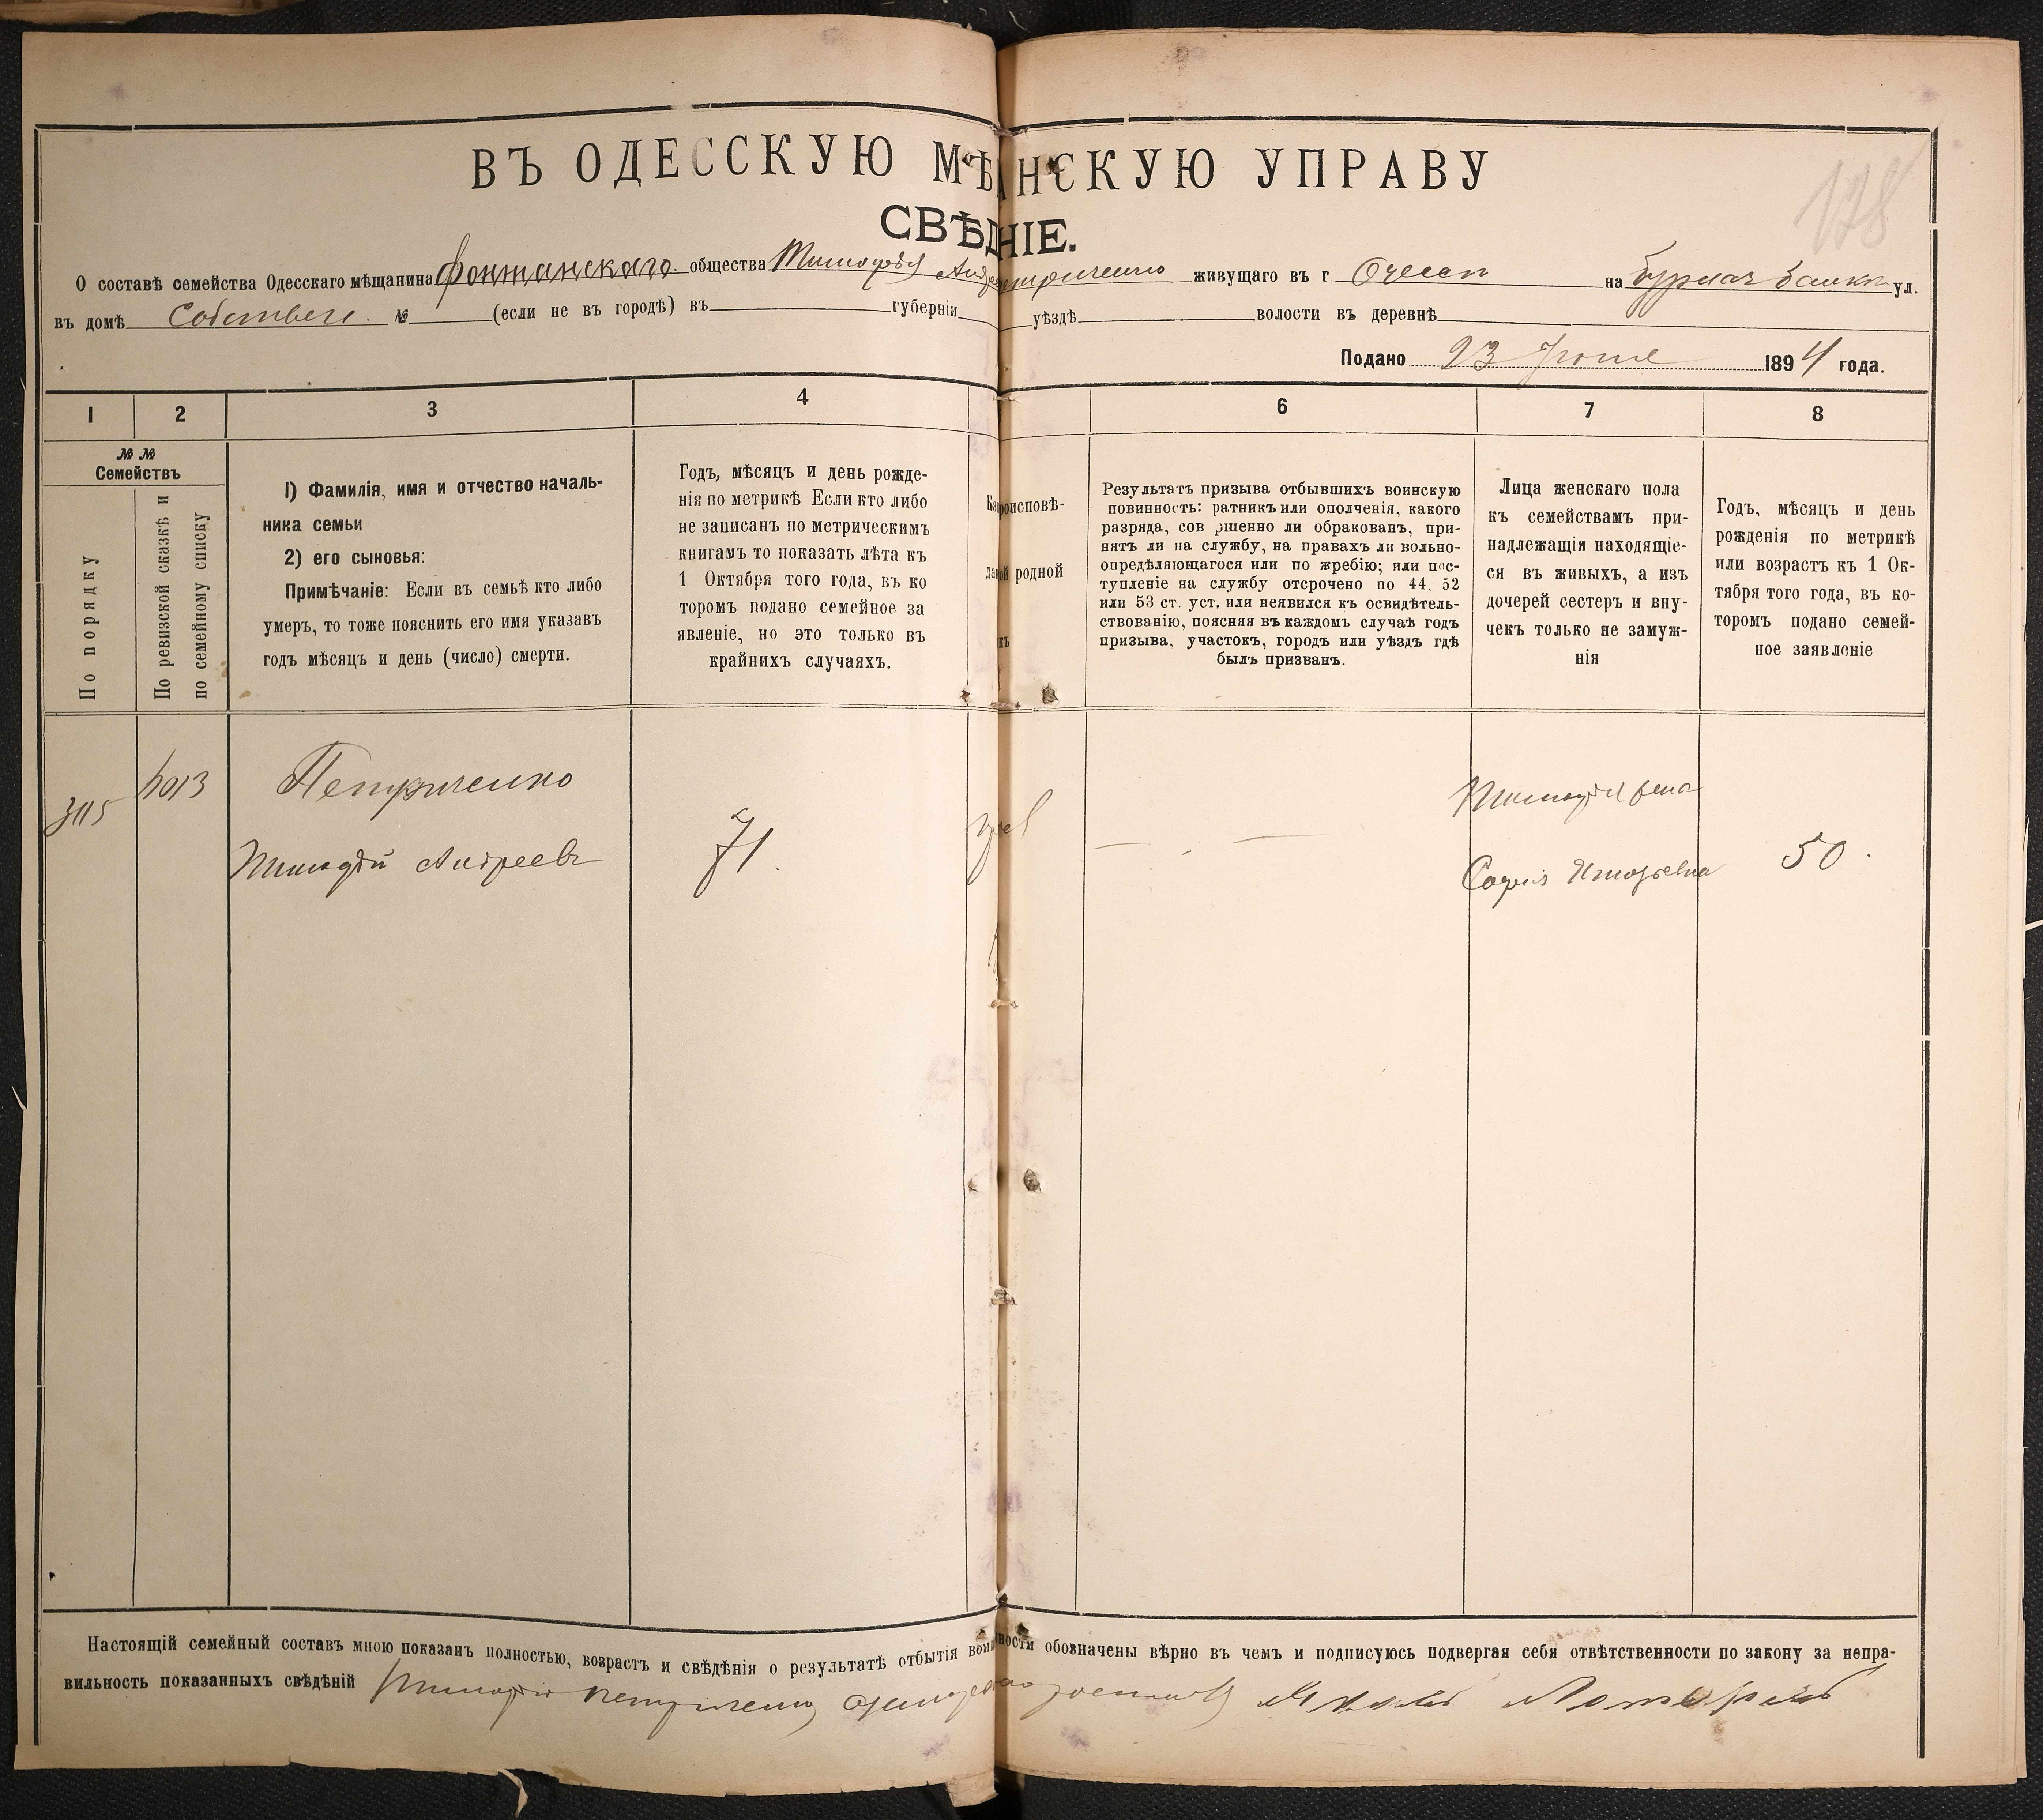 178
ВЪ ОДЕССКУЮ МѢ АНСКУЮ УПРАВУ
СВѢД НІЕ.
О составѣ семейства Одесскаго мѣщанина Фонтанскаго общества Тимофѣя Андр етриченко живущаго въ г Одессп на Бурлач балкп ул.
въ домѣ Собствен. № (если не въ городѣ) въ губерніи уѣздѣ волости въ деревнѣ
Подано 23 Іюня 1894 года.
1 2 3 4 6 7 8
№ №
Семействъ
По порядку
По ревизской сказкѣ и
по семейному списку
1) Фамилія, имя и отчество началь-
ника семьи
2) его сыновья:
Примѣчаніе: Если въ семьѣ кто либо
умеръ, то тоже пояснить его имя указавъ
годъ мѣсяцъ и день (число) смерти.
Годъ, мѣсяцъ и день рожде-
нія по метрикѣ Если кто либо
не записанъ по метрическимъ
книгамъ то показать лѣта къ
1 Октября того года, въ ко
торомъ подано семейное за
явленіе, но это только въ
крайнихъ случаяхъ.
Ка роисповѣ-
да ой родной
къ
Результатъ призыва отбывшихъ воинскую
повинность: ратникъ или ополченія, какого
разряда, сов ршенно ли обракованъ, при-
нятъ ли на службу, на правахъ ли вольно-
опредѣляющагося или по жребію; или пос-
тупленіе на службу отсрочено по 44, 52
или 53 ст. уст. или неявился къ освидѣтель-
ствованію, поясняя въ каждомъ случаѣ годъ
призыва, участокъ, городъ или уѣздъ гдѣ
былъ призванъ.
Лица женскаго пола
къ семействамъ при-
надлежащія находящіе-
ся въ живыхъ, а изъ
дочерей сестеръ и вну-
чекъ только не замуж-
нія
Годъ, мѣсяцъ и день
рожденія по метрикѣ
или возрастъ къ 1 Ок-
тября того года, въ ко-
торомъ подано семей-
ное заявленіе
Петриченко
Тимофій Андреевъ
71.
Тимофія жена
Софія
50.
Настоящій семейный составъ мною показанъ полностью, возрастъ и свѣдѣнія о результатѣ отбытія воин ности обозначены вѣрно въ чемъ и подписуюсь подвергая себя отвѣтственности по закону за непра-
вильность показанныхъ свѣдѣній Тимофій Петриченко